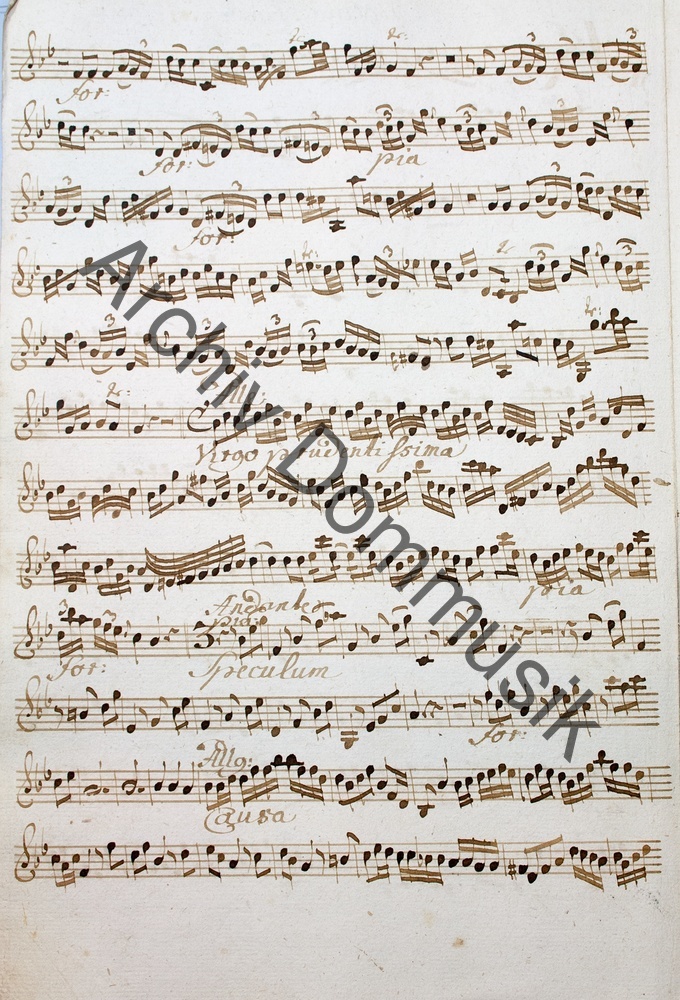 for:
for: pia
for:
All:
Virgo prudentissima
pia
Andante
pia:
for: Speculum
for:
Allg:
Causa
Archiv Dommusik